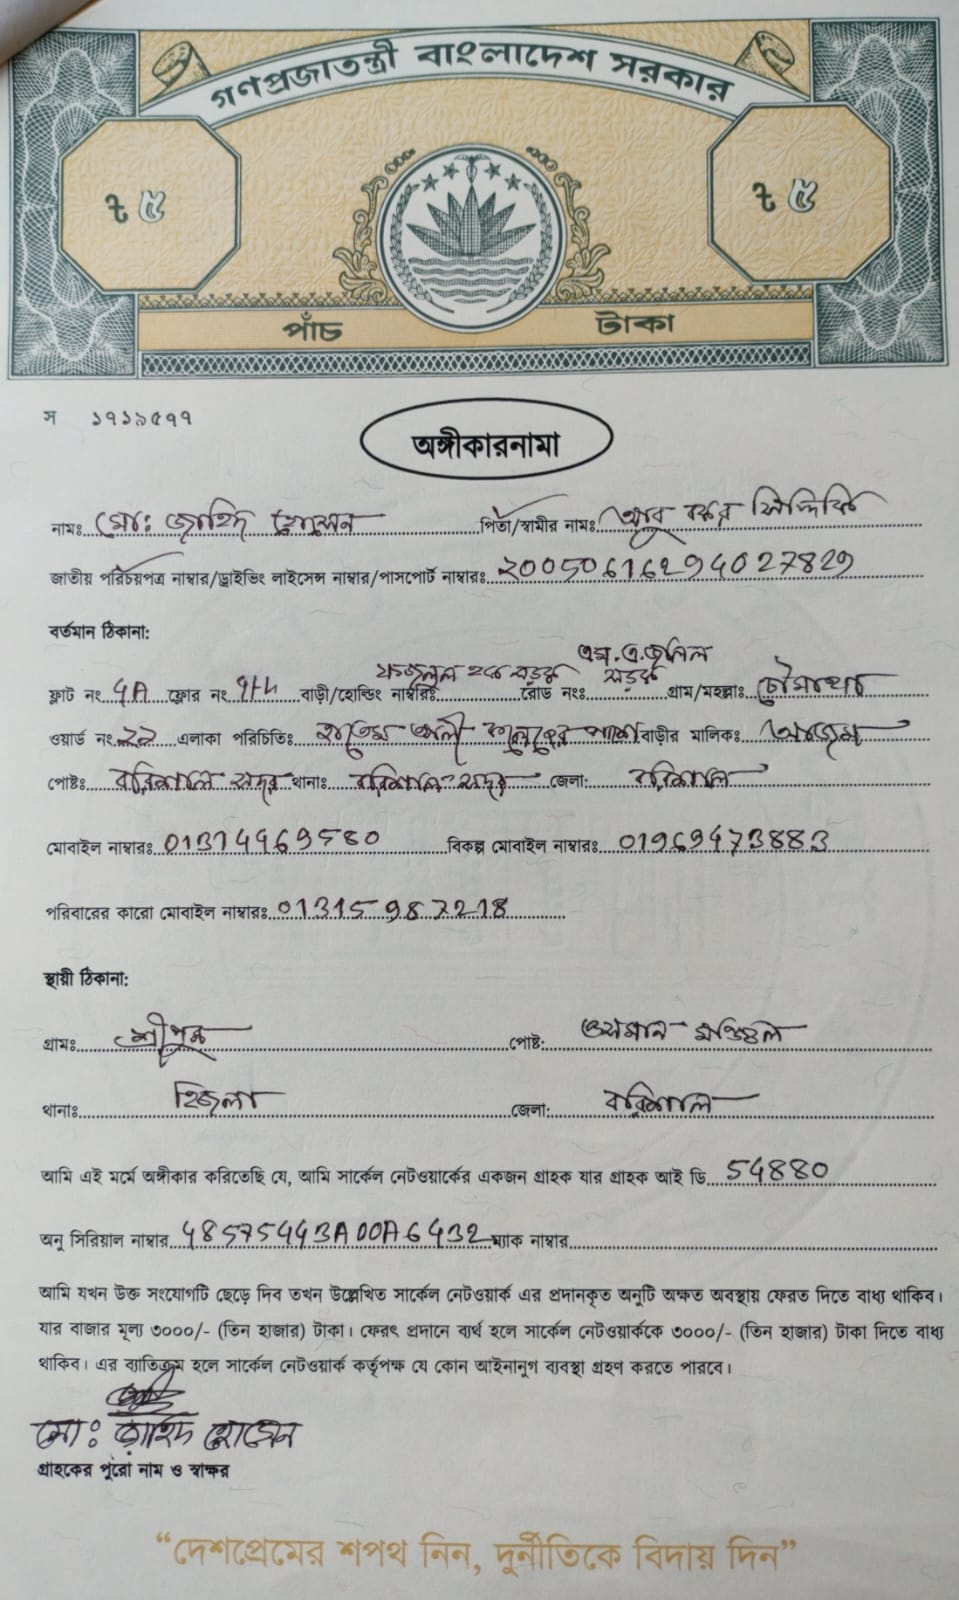 গণপ্রজাতন্ত্রী বাংলাদেশ সরকার
৳ ৫ ৳ ৫
পাঁচ টাকা
স ১৭১৯৫৭৭
অঙ্গীকারনামা
নামঃ মোঃ জাহিদ হোসেন পিতা/স্বামীর নামঃ আবু বকর সিদ্দিকি
জাতীয় পরিচয়পত্র নাম্বার/ড্রাইভিং লাইসেন্স নাম্বার/পাসপোর্ট নাম্বারঃ 20050616294027829
বর্তমান ঠিকানা:
ফজলুল হক সড়ক এম.এ.জলিল সড়ক
ফ্লাট নং 4A ফ্লোর নং বাড়ী/হোল্ডিং নাম্বারঃ রোড নংঃ গ্রাম/মহল্লাঃ চৌমাথা
ওয়ার্ড নং ২২ এলাকা পরিচিতিঃ হাতেম আলী কলেজের পাশে বাড়ীর মালিকঃ
পোষ্টঃ বরিশাল সদর থানাঃ বরিশাল সদর জেলা: বরিশাল
মোবাইল নাম্বারঃ 01314469580 বিকল্প মোবাইল নাম্বারঃ 01969473883
পরিবারের কারো মোবাইল নাম্বারঃ 01315987218
স্থায়ী ঠিকানা:
গ্রামঃ শ্রীপুর পোষ্ট: ওসমান মঞ্জিল
থানাঃ হিজলা জেলা: বরিশাল
আমি এই মর্মে অঙ্গীকার করিতেছি যে, আমি সার্কেল নেটওয়ার্কের একজন গ্রাহক যার গ্রাহক আই ডি 54880
অনু সিরিয়াল নাম্বার 48575443A00A6432 ম্যাক নাম্বার
আমি যখন উক্ত সংযোগটি ছেড়ে দিব তখন উল্লেখিত সার্কেল নেটওয়ার্ক এর প্রদানকৃত অনুটি অক্ষত অবস্থায় ফেরত দিতে বাধ্য থাকিব।
যার বাজার মূল্য ৩০০০/- (তিন হাজার) টাকা। ফেরৎ প্রদানে ব্যর্থ হলে সার্কেল নেটওয়ার্ককে ৩০০০/- (তিন হাজার) টাকা দিতে বাধ্য
থাকিব। এর ব্যতিক্রম হলে সার্কেল নেটওয়ার্ক কর্তৃপক্ষ যে কোন আইনানুগ ব্যবস্থা গ্রহণ করতে পারবে।
মোঃ জাহিদ হোসেন
গ্রাহকের পুরো নাম ও স্বাক্ষর
“দেশপ্রেমের শপথ নিন, দুর্নীতিকে বিদায় দিন”